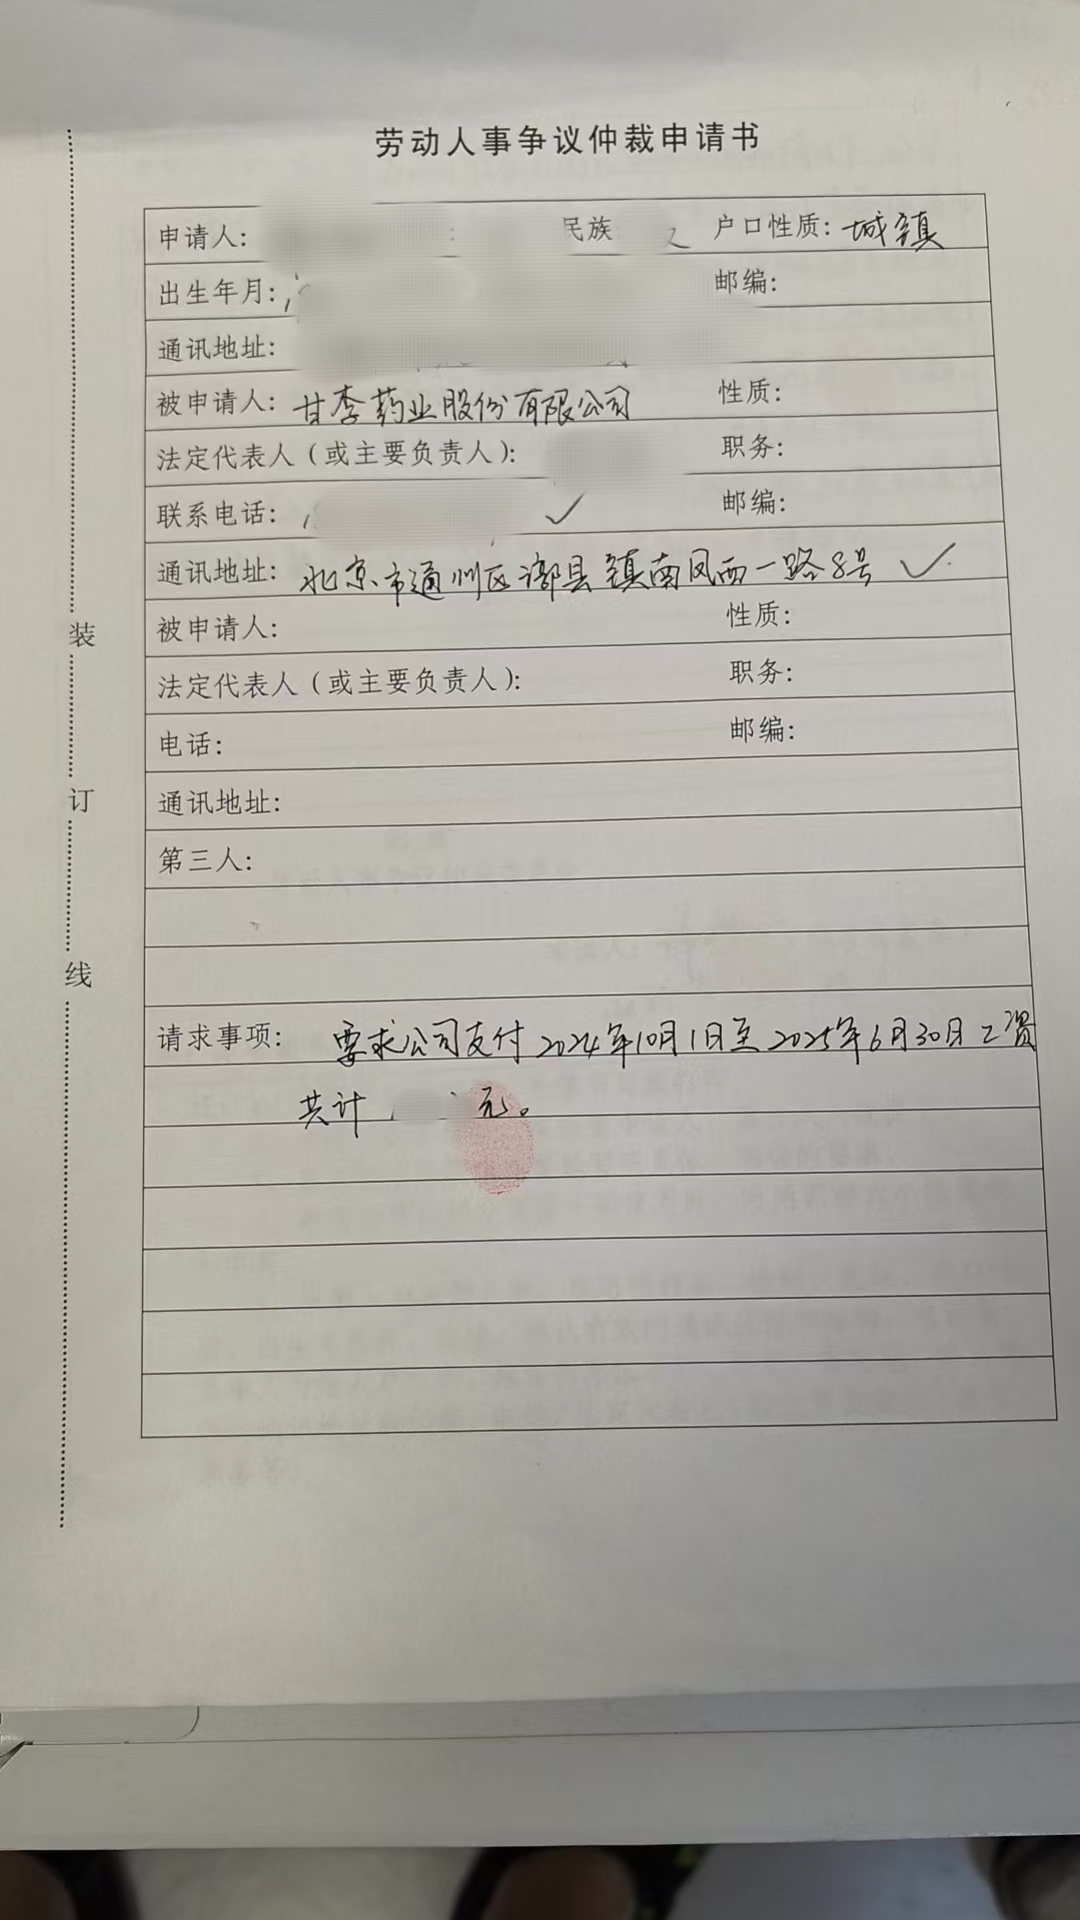 劳动人事争议仲裁申请书
申请人: 民族 户口性质: 城镇
出生年月: 邮编:
通讯地址:
被申请人: 甘李药业股份有限公司 性质:
法定代表人(或主要负责人): 职务:
联系电话: 邮编:
通讯地址: 北京市通州区漷县镇南凤西一路8号
被申请人: 性质:
法定代表人(或主要负责人): 职务:
电话: 邮编:
通讯地址:
第三人:
请求事项: 要求公司支付2024年10月1日至2025年6月30日工资
共计 元。
装
订
线